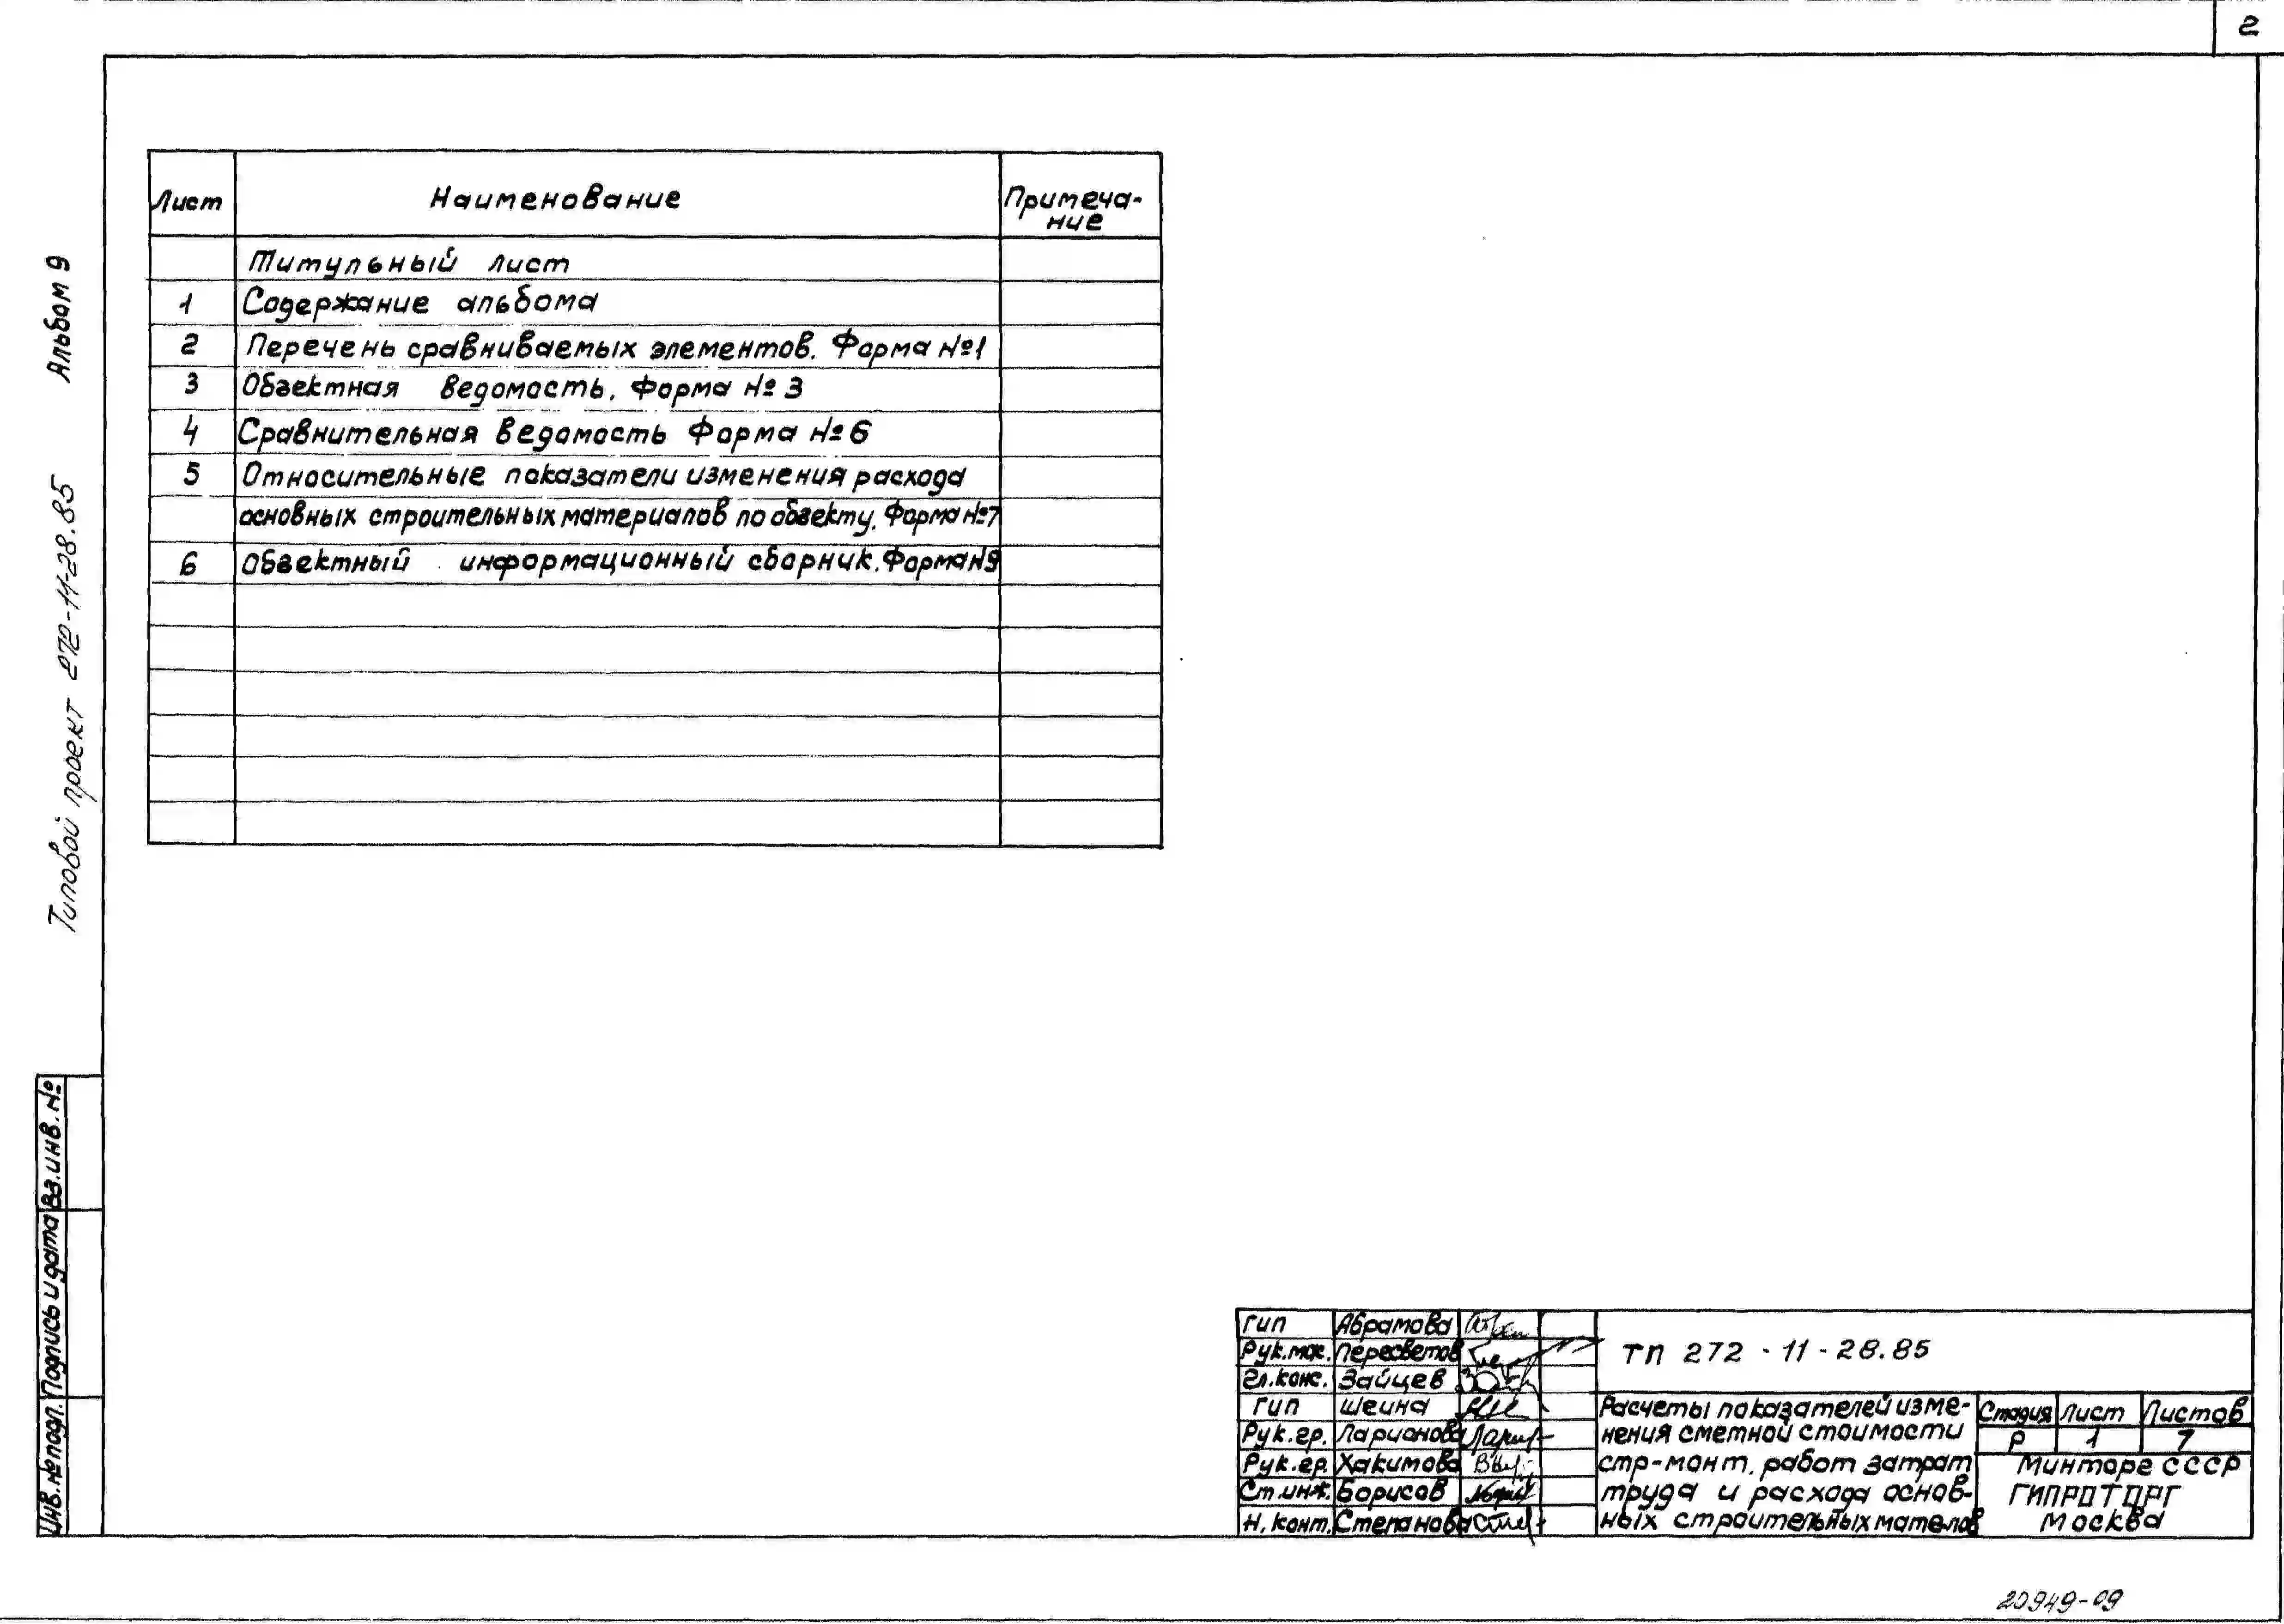 2
Альбом 9
Типовой проект 272-11-28.85
Лист Наименование Примеча-
ние
Титульный лист
1 Содержание альбома
2 Перечень сравниваемых элементов. Форма №1
3 Объектная ведомость. Форма № 3
4 Сравнительная ведомость Форма № 6
5 Относительные показатели изменения расхода
основных строительных материалов по объекту. Форма №7
6 Объектный информационный сборник. Форма №9
Вз.инв.№
Подпись и дата
Инв.№подл.
ГИП Абрамова
Рук.мас. Пересветов
Гл.конс. Зайцев
ГИП Шеина
Рук.гр. Ларионова
Рук.гр. Хакимова
Ст.инж. Борисов
Н.конт. Степанова
ТП 272-11-28.85
Расчеты показателей изме-
нения сметной стоимости
стр-монт. работ затрат
труда и расхода основ-
ных строительных мат-лов
Стадия Лист Листов
Р 1 7
Минторг СССР
ГИПРОТОРГ
Москва
20949-09